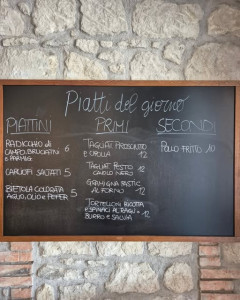 Piatti del giorno
PIATTINI
RADICCHIO di
CAMPO, BRUCIATINI 6
E PARMIG.
CARCIOFI SALTATI 5
BIETOLA COLORATA 5
AGLIO, OLIO E PEPER
PRIMI
TAGLIAT. PROSCIUTTO
E CIPOLLA 12
TAGLIAT. PESTO
CAVOLO NERO 12
GRAMIGNA PASTIC.
AL FORNO 12
TORTELLONI RICOTTA
E SPINACI AL RAGÙ o 12
BURRO E SALVIA
SECONDI
POLLO FRITTO 10